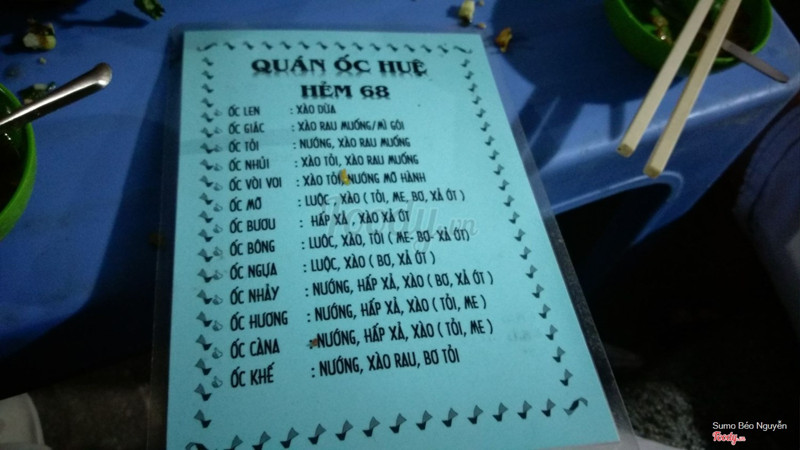 QUÁN ỐC HUỆ
HẺM 68
ỐC LEN : XÀO DỪA
ỐC GIÁC : XÀO RAU MUỐNG/MÌ GÓI
ỐC TỎI : NƯỚNG, XÀO RAU MUỐNG
ỐC NHÚI : XÀO TỎI, XÀO RAU MUỐNG
ỐC VÒI VOI : XÀO TỎI, NƯỚNG MỠ HÀNH
ỐC MỠ : LUỘC, XÀO ( TỎI, ME, BƠ, XẢ ỚT )
ỐC BƯƠU : HẤP XẢ , XÀO XẢ ỚT
ỐC BÔNG : LUÔC, XÀO, TỎI ( ME- BƠ- XẢ ỚT)
ỐC NGỰA : LUỘC, XÀO ( BƠ, XẢ ỚT )
ỐC NHẢY : NƯỚNG, HẤP XẢ, XÀO ( BƠ, XẢ ỚT )
ỐC HƯƠNG : NƯỚNG, HẤP XẢ, XÀO ( TỎI, ME )
ỐC CÀNA : NƯỚNG, HẤP XẢ, XÀO ( TỎI, ME )
ỐC KHẾ : NƯỚNG, XÀO RAU, BƠ TỎI
foody.vn
Sumo Béo Nguyễn
foody.vn